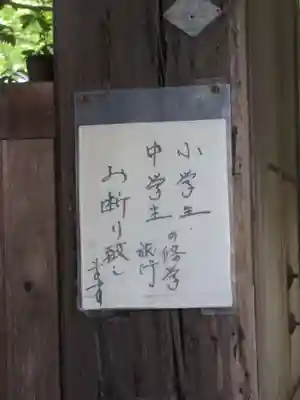 小学生
中学生の修学
旅行
お断り致し
ます